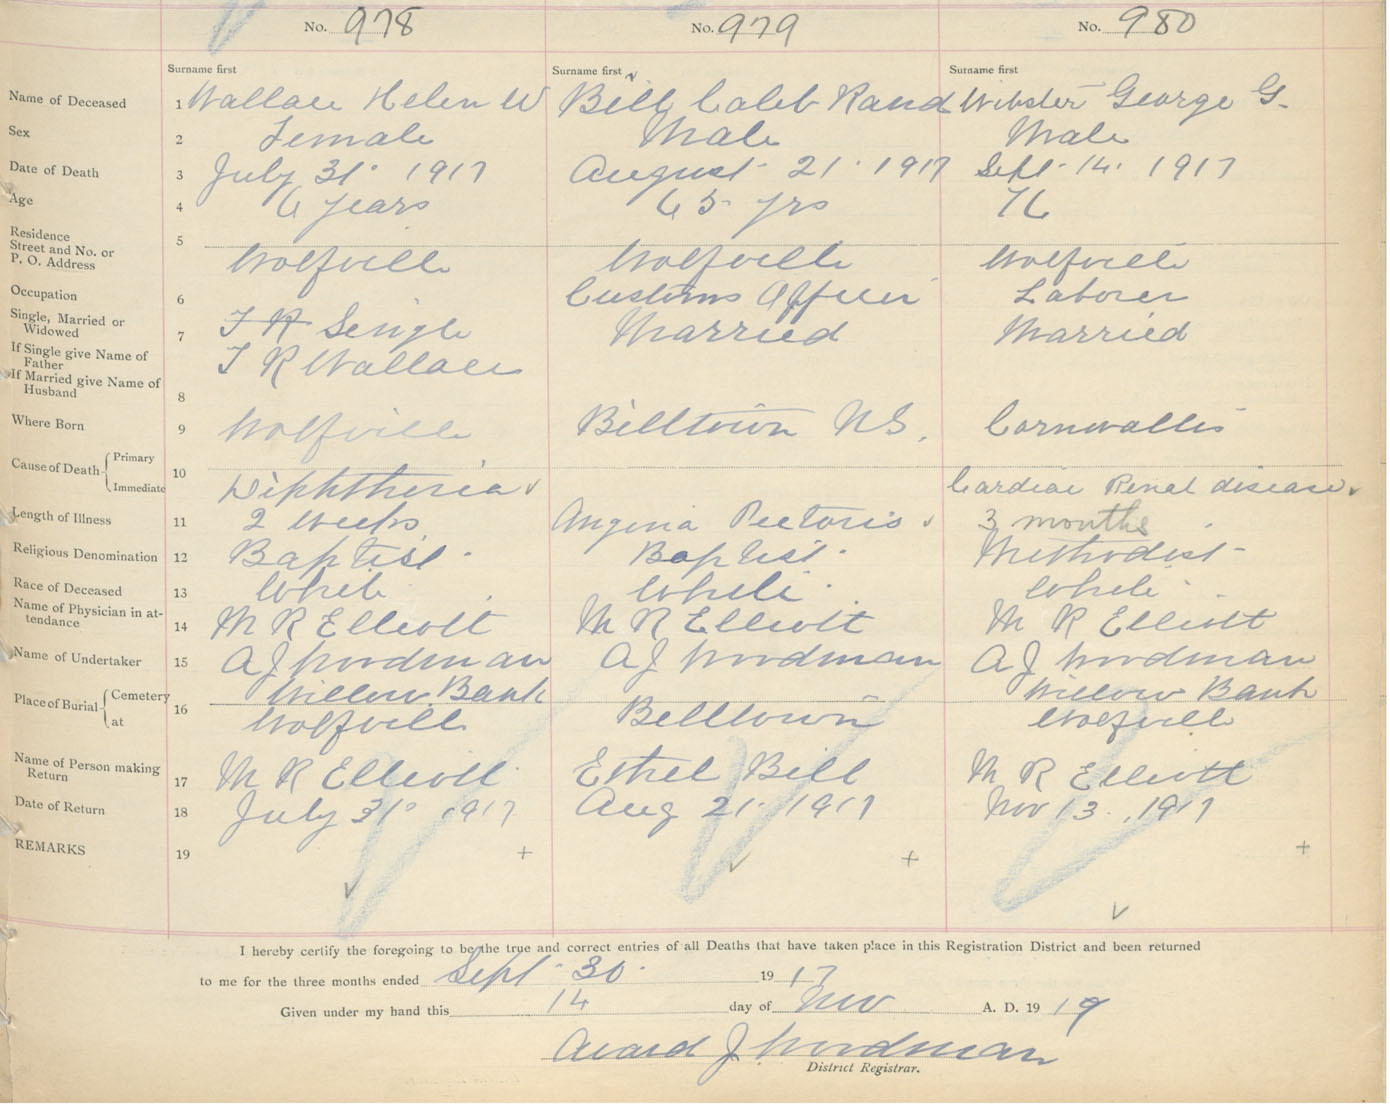 No. 978 No. 979 No. 980
Surname first Surname first Surname first
Name of Deceased 1 Wallace Helen W Bill Caleb Rand Webster George G.
Sex 2 Female Male Male
Date of Death 3 July 31 1917 August 21 1917 Sept 14 1917
Age 4 6 years 65 yrs 76
Residence
Street and No. or
P. O. Address 5 Wolfville Wolfville Wolfville
Occupation 6 Customs Officer Laborer
Single, Married or
Widowed 7 F R Single Married Married
If Single give Name of
Father F R Wallace
If Married give Name of
Husband 8
Where Born 9 Wolfville Billtown NS. Cornwallis
Cause of Death Primary 10
Immediate Diphtheria Cardiac Renal disease
Length of Illness 11 2 weeks Angina Pectoris 3 months
Religious Denomination 12 Baptist Baptist Methodist
Race of Deceased 13 White White White
Name of Physician in at-
tendance 14 M R Elliott M R Elliott M R Elliott
Name of Undertaker 15 A J Woodman A J Woodman A J Woodman
Place of Burial Cemetery 16 Willow Bank Willow Bank
at Wolfville Billtown Wolfville
Name of Person making
Return 17 M R Elliott Ethel Bill M R Elliott
Date of Return 18 July 31 1917 Aug 21 1917 Nov 13 1917
REMARKS 19 + + +
I hereby certify the foregoing to be the true and correct entries of all Deaths that have taken place in this Registration District and been returned
to me for the three months ended Sept 30 1917
Given under my hand this 14 day of Nov A. D. 1919
Avard J Woodman
District Registrar.